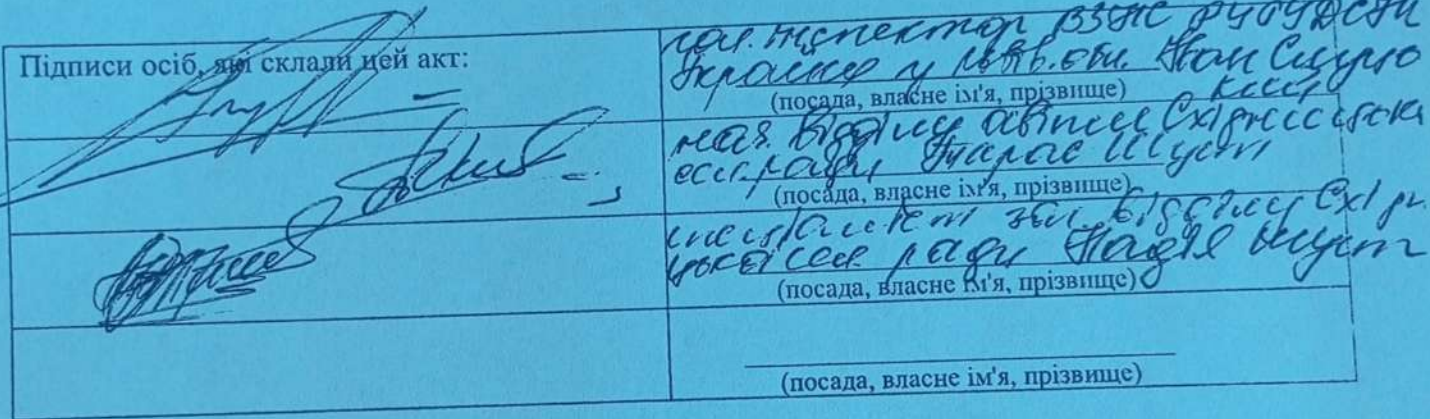 Підписи осіб, які склали цей акт:
гол. інспектор
України у Львів. обл. Іван
(посада, власне ім'я, прізвище)
нач. відділу освіти Східницької
сел. ради Тарас Шуст
(посада, власне ім'я, прізвище)
спеціаліст зем. відділу Східни
цької сел. ради Надія Шуст
(посада, власне ім'я, прізвище)
(посада, власне ім'я, прізвище)